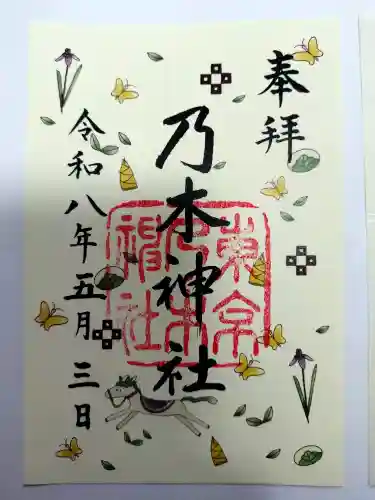 奉拝
乃木神社
令和八年五月三日
東京乃木神社